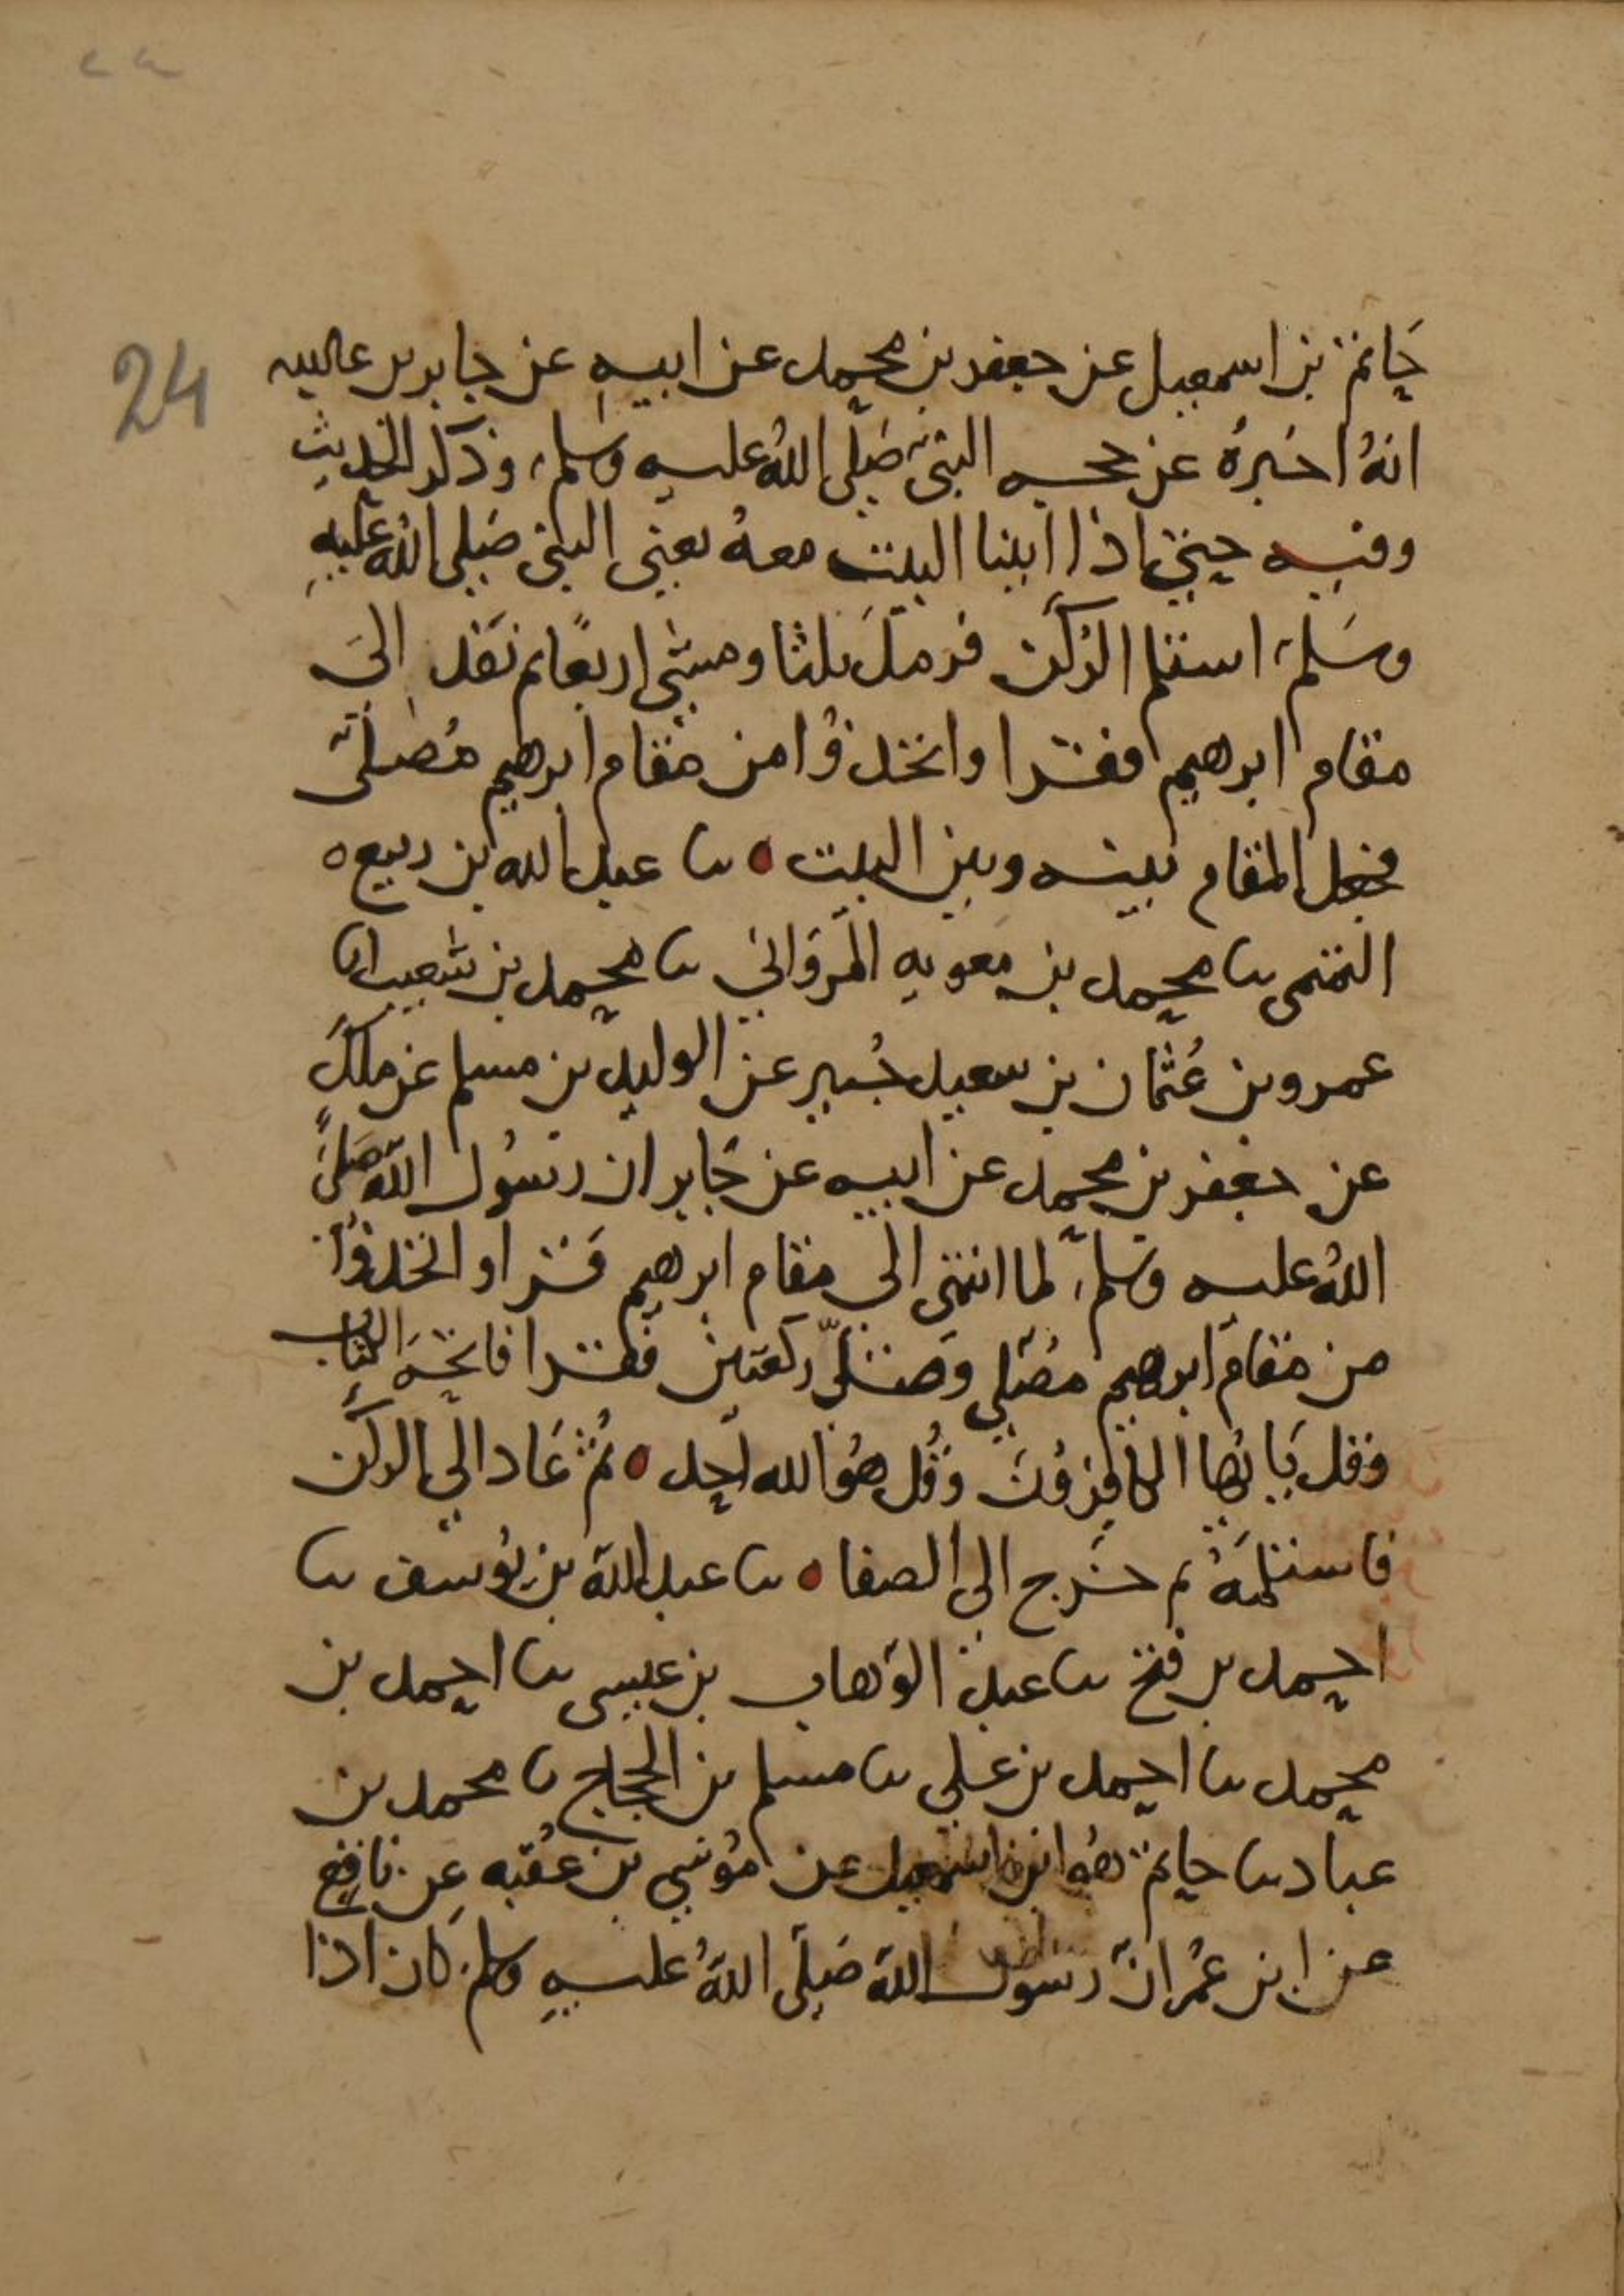 ٢٤
24
حاتم بن اسمعيل عن جعفر بن محمد عن ابيه عن جابر بن عبدالله
انهُ اخبرهُ عن حجه النبي صَلى اللهُ عليه وسلم، وذكر الحديث
وفيه حتى اذا اتينا البيت معهُ يعني النبي صَلى اللهُ عليهِ
وسَلم، استلم الرُكن فرملَ ثلثا ومشى اربعًا ثم نفذ الىَ
مقام ابرهيم فقرا واتخذوُا من مقام ابرهيم مُصلى
فجعل المقام بينه وبين البيت ٥ نا عبد الله بن ربيع ٥
التميمى نا محمد بن معويه المَرواني نا محمد بن شعيب انا
عمرو بن عُثمان بن سعيد جُبير عن الوليد بن مسلم عن ملك
عن جعفر بن محمد عن ابيه عن جَابر ان رسُول الله صَلىَ
اللهُ عليه وسلم، لما انتهى الى مقام ابرهيم قَرا واتخذوُا
من مقام ابرهيم مصَلى وَصَلىّ ركعتين فقرا فاتحهَ الكتاب
وقل يَا ايُها الكافِرُونَ وقُل هوُ الله احد ٥ ثُمّ عَاد الى الركن
فاستلمَهُ ثم خرج الى الصفا ٥ نا عبد الله بن يوُسف نا
احمد بن فتح نا عبد الوَهاب بن عيسى نا احمد بن
محمد نا احمد بن علي نا مسلم بن الحجاج نا محمد بن
عباد نا حاتم هوُ ابن اسمعيل عن موُسى بن عُقبه عن نافع
عن ابن عُمر انّ رسول الله صَلى اللهُ عليهِ وسلم، كان اذا